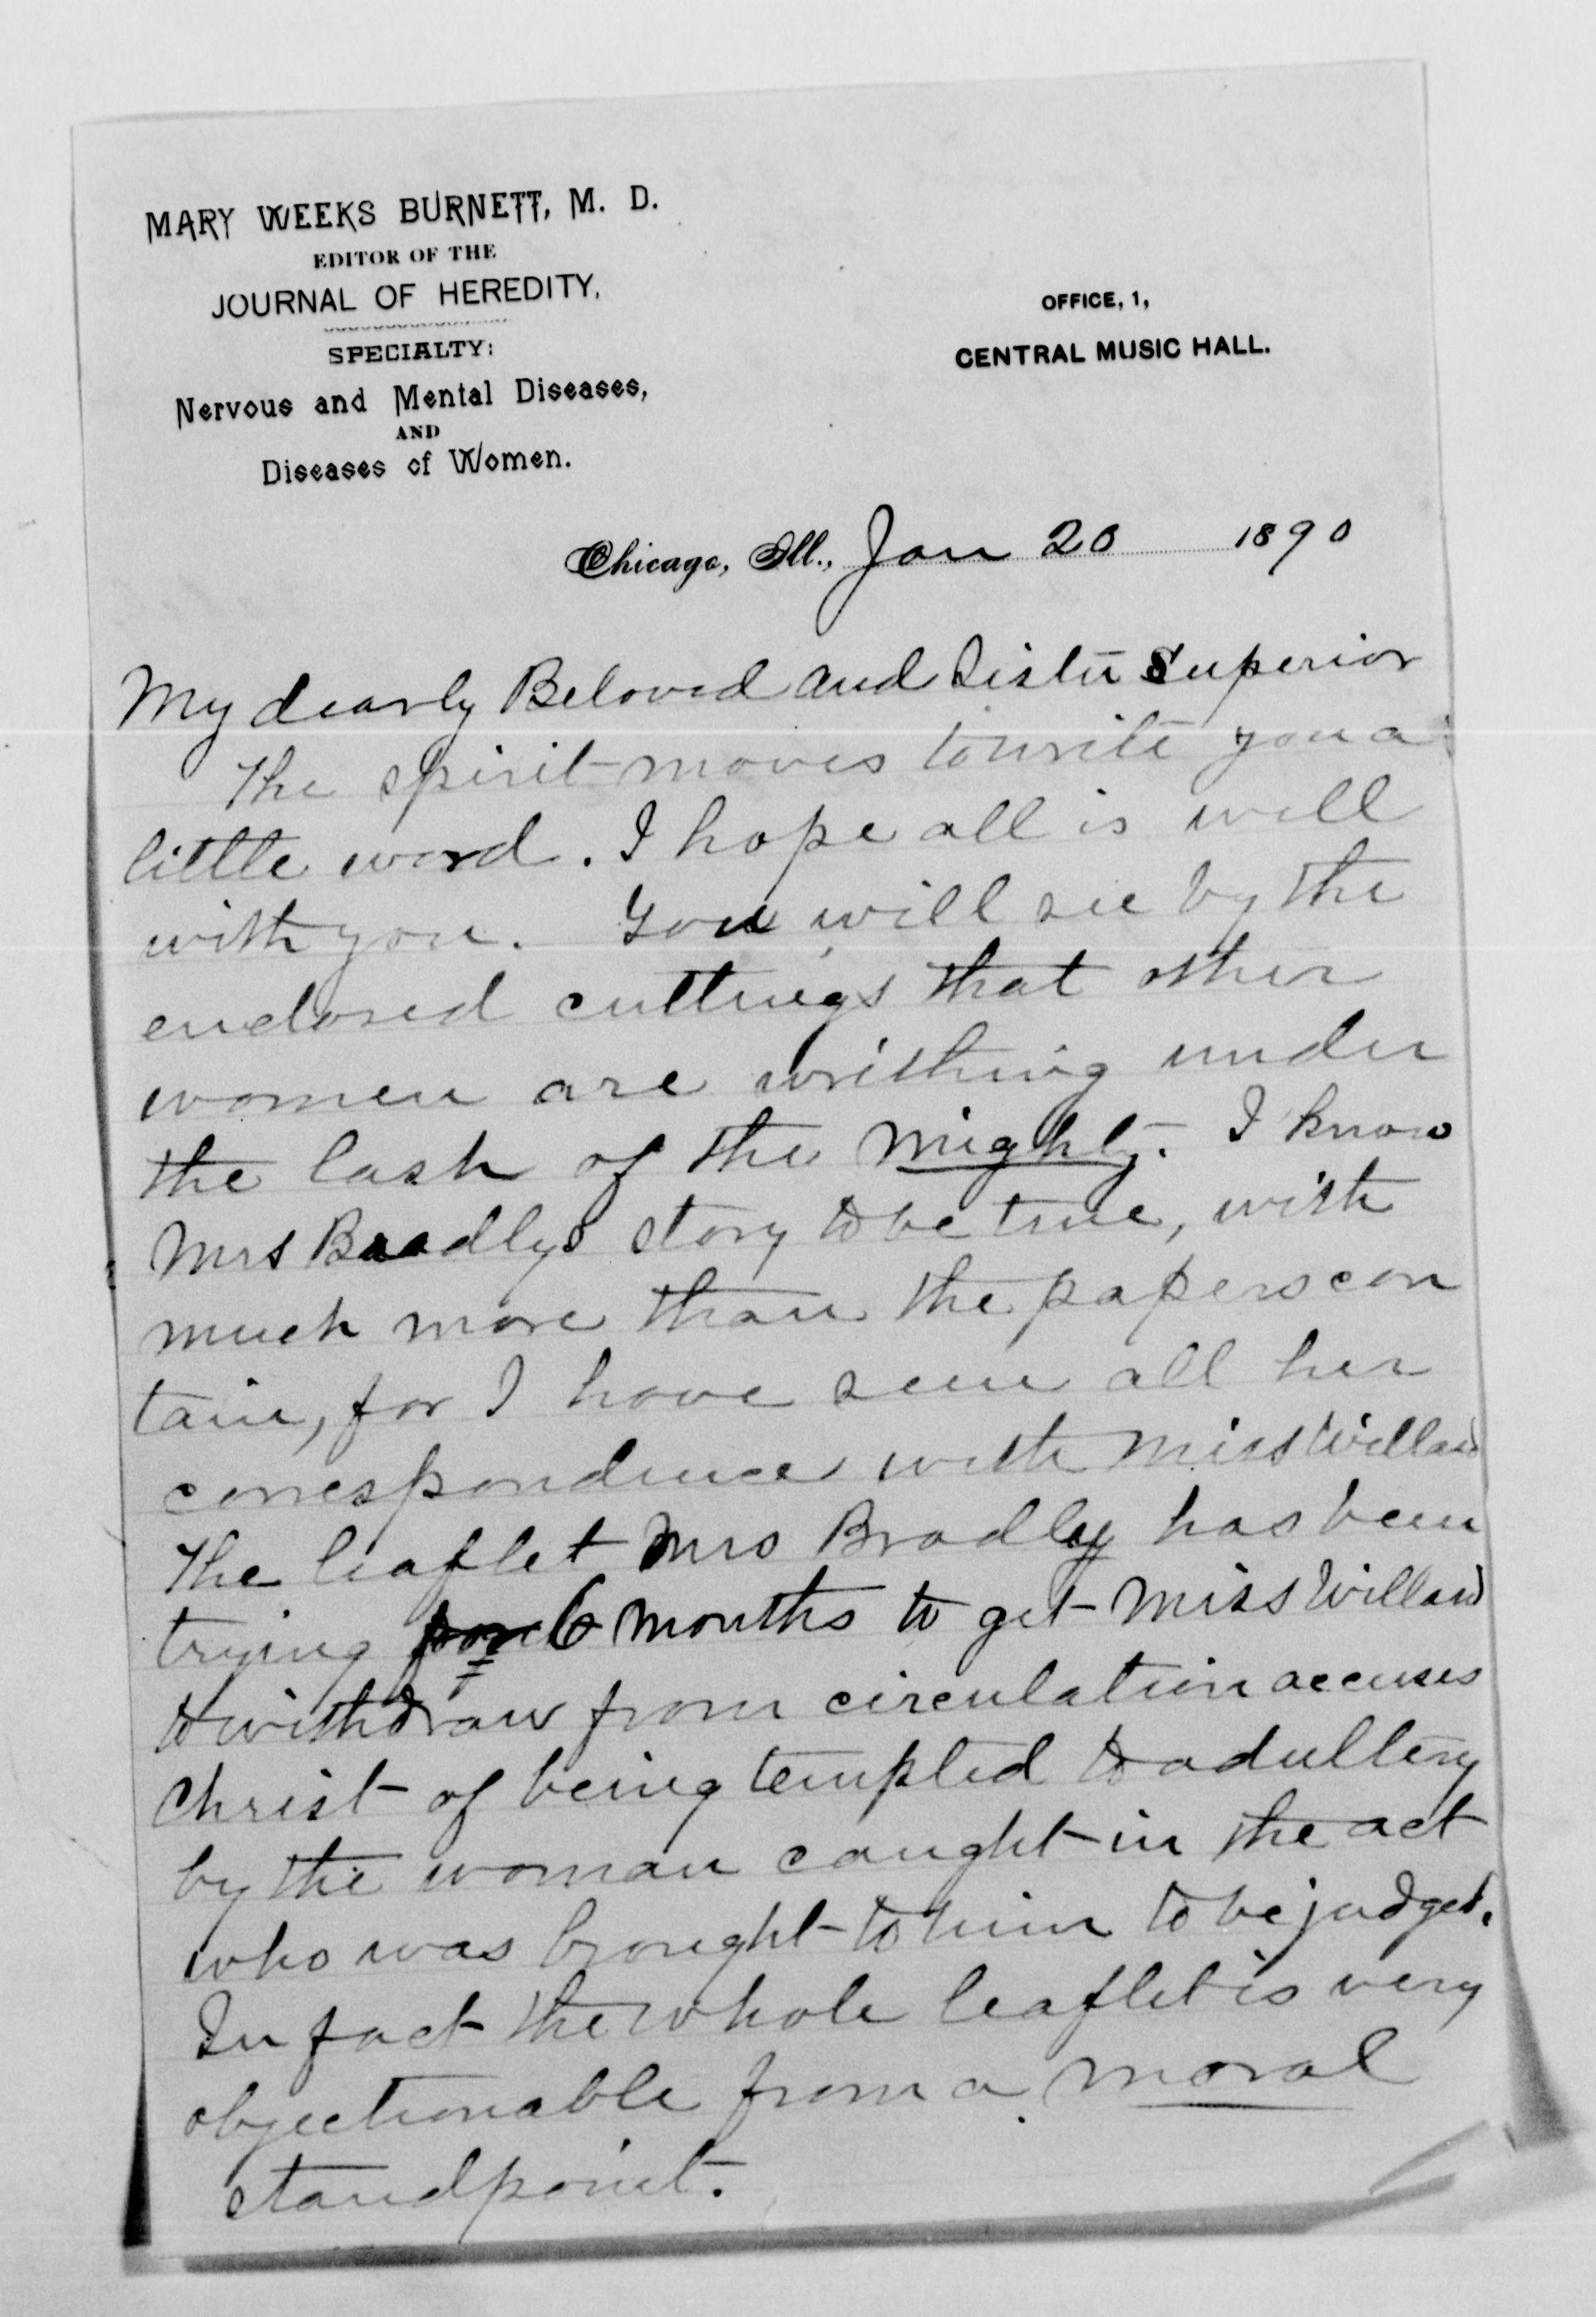 MARY WEEKS BURNETT, M. D.
EDITOR OF THE
JOURNAL OF HEREDITY,
SPECIALTY:
Nervous and Mental Diseases,
AND
Diseases of Women.
OFFICE, 1,
CENTRAL MUSIC HALL.
Chicago, Ill., Jan 20 1890
My dearly Beloved and Sister Superior
The spirit moves to write you a
little word. I hope all is well
with you. You will see by the
enclosed cuttings that other
women are writhing under
the lash of the mighty. I know
Mrs Bradlys story to be true, with
much more than the papers con
tain, for I have seen all her
correspondence with Miss Willard
The leaflet Mrs Bradly has been
trying for 6 months to get Miss Willard
to withdraw from circulation accuses
Christ of being tempted to adultery
by the woman caught in the act
who was brought to him to be judged.
In fact the whole leaflet is very
objectionable from a moral
standpoint.